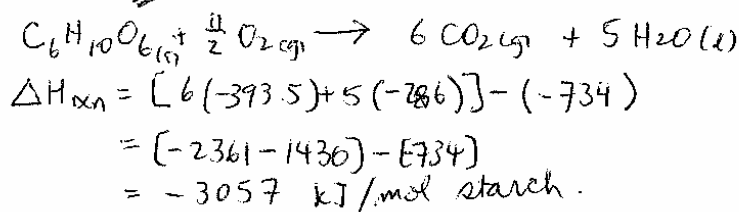 C6H10O6(s) + 11/2 O2(g) → 6 CO2(g) + 5 H2O(l)
ΔHrxn = [6(-393.5)+5(-286)] - (-734)
= [-2361-1430) - [-734]
= -3057 kJ/mol starch.